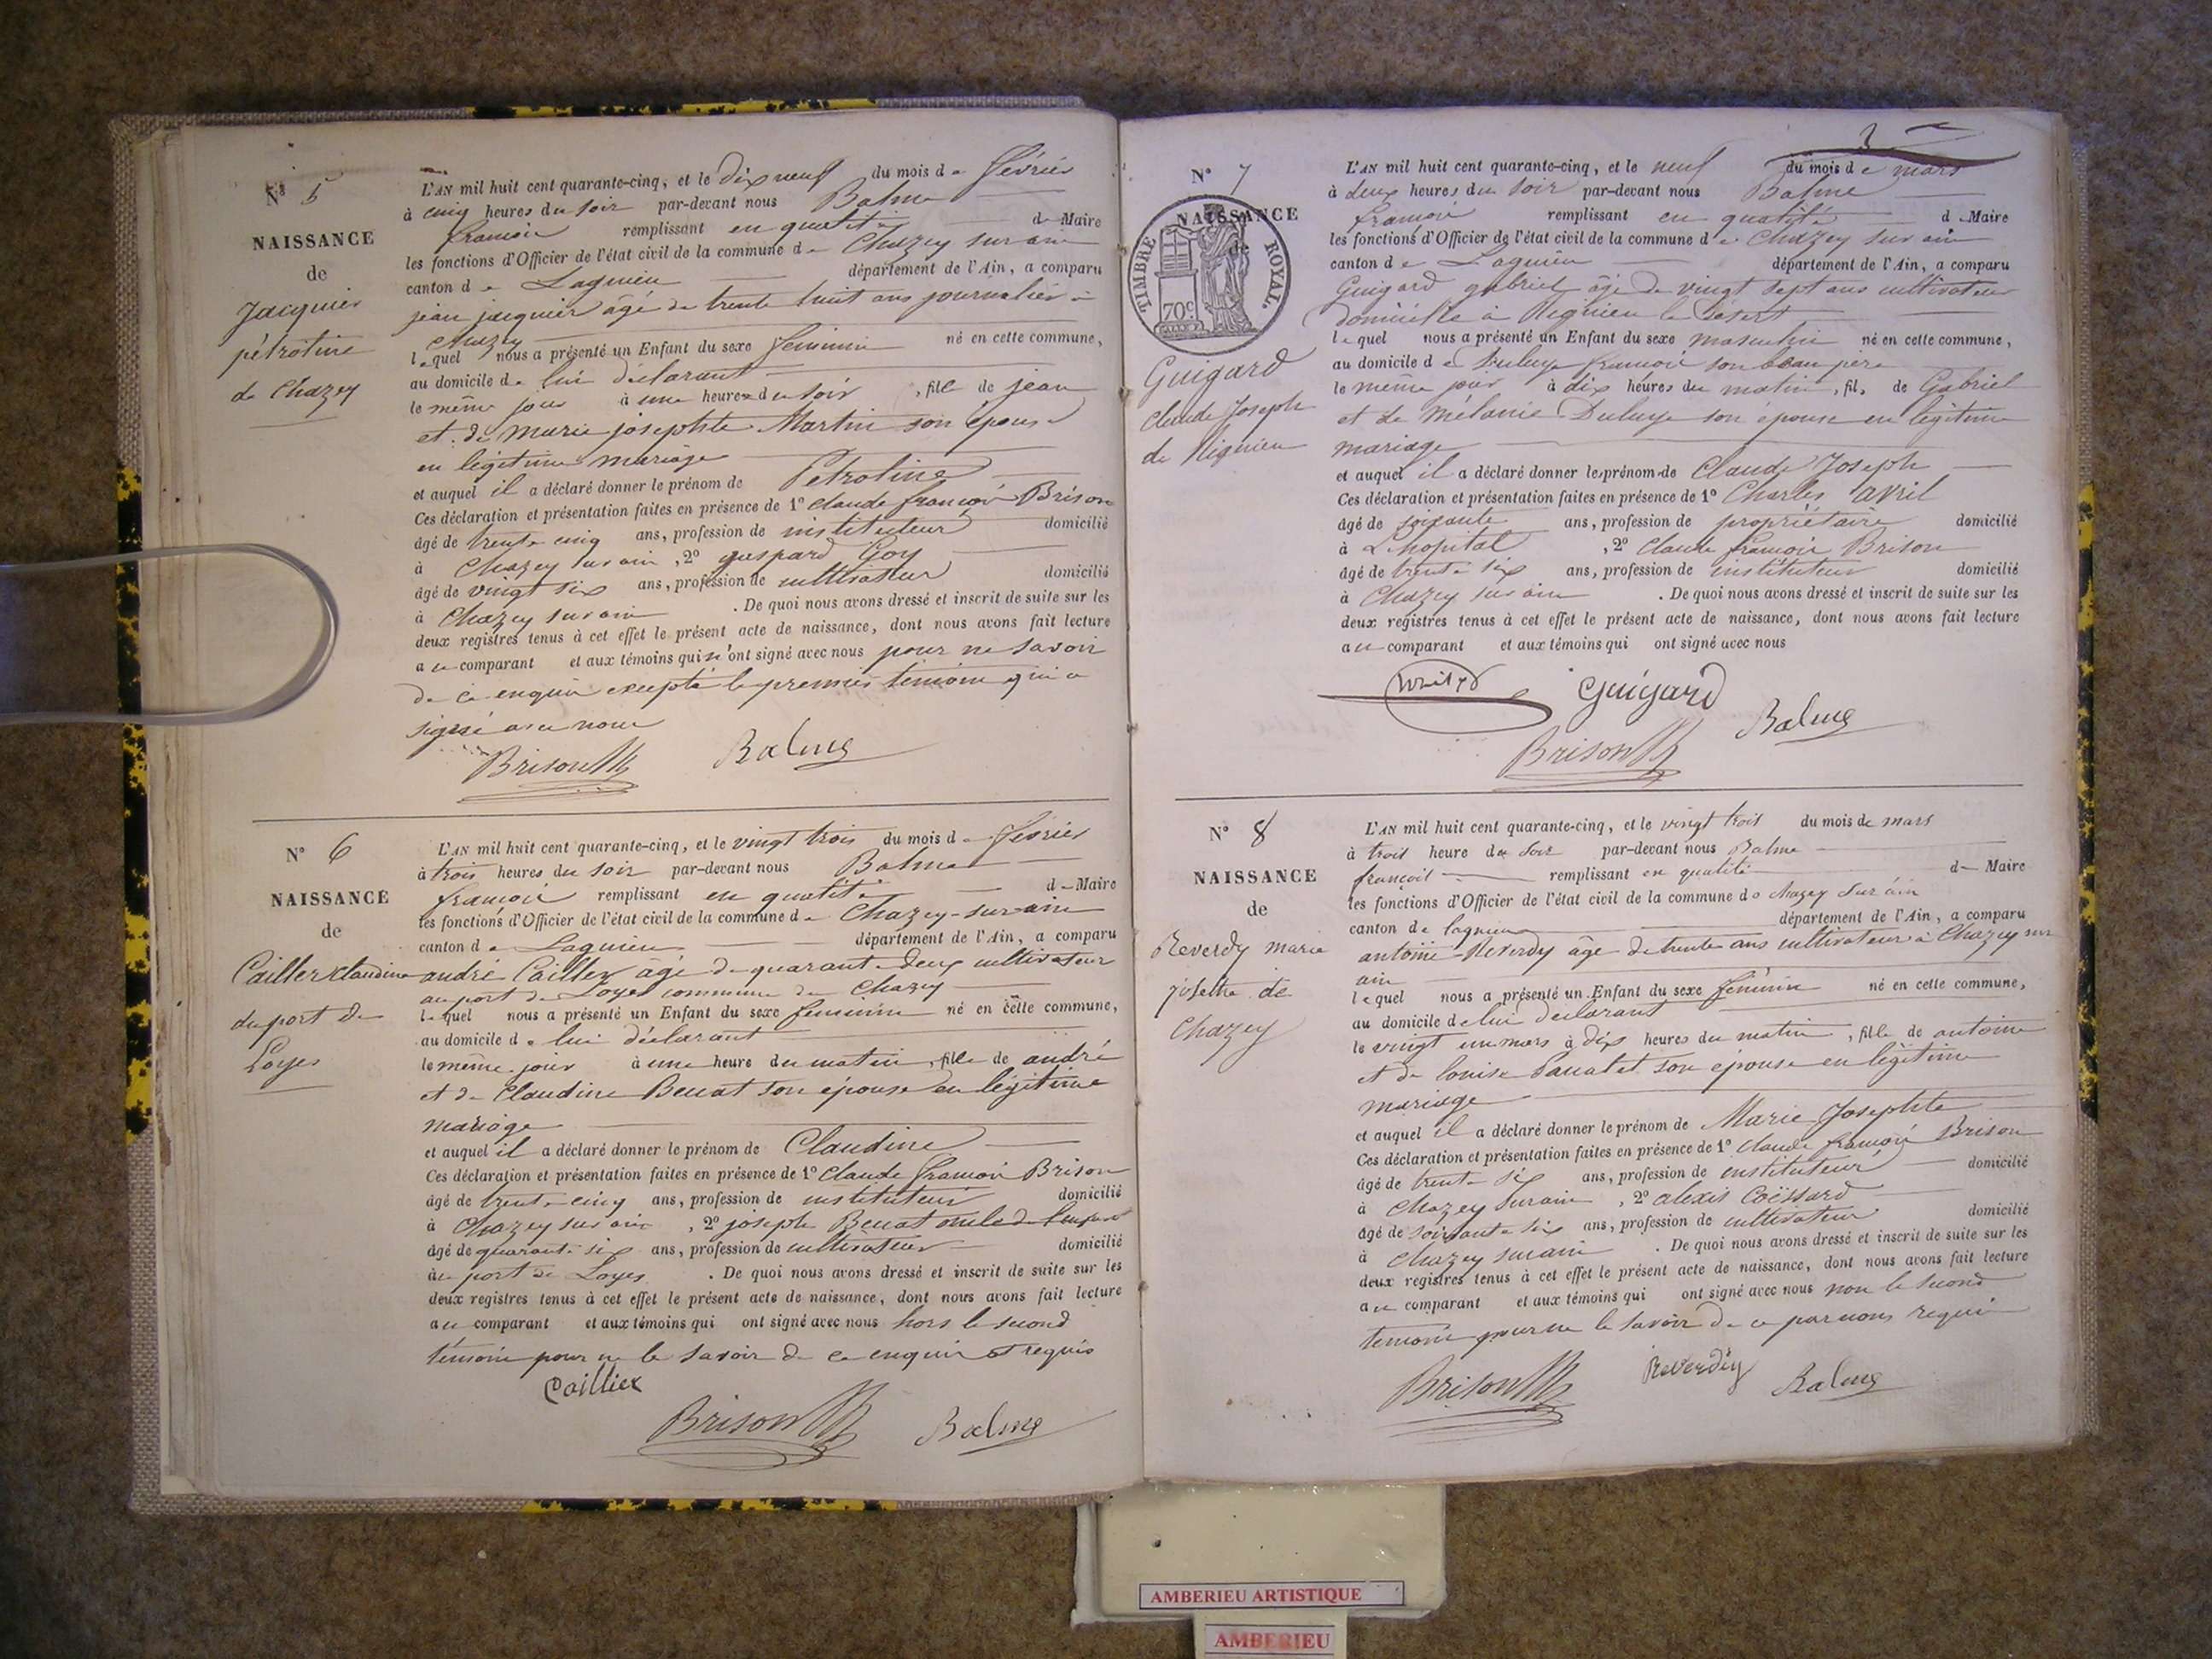 N° 5
NAISSANCE
de
Jacquier
pétrotine
de Chazey
L'AN mil huit cent quarante-cinq, et le dix neuf du mois de février
à cinq heures du soir par-devant nous Balme
françois remplissant en qualité de Maire
les fonctions d'Officier de l'état civil de la commune de Chazey sur ain
canton de Lagnieu département de l'Ain, a comparu
jean jacquier âgé de trente huit ans journalier à
chazey
lequel nous a présenté un Enfant du sexe féminin né en cette commune,
au domicile de lui déclarant
le même jour à une heure du soir, fille de jean
et de marie josephte Martin son épouse
en légitime mariage
et auquel il a déclaré donner le prénom de Pétrotine
Ces déclaration et présentation faites en présence de 1° Claude françois Brison
âgé de trente cinq ans, profession de instituteur domicilié
à Chazey sur ain, 2° gaspard Goy
âgé de vingt six ans, profession de cultivateur domicilié
à Chazey sur ain. De quoi nous avons dressé et inscrit de suite sur les
deux registres tenus à cet effet le présent acte de naissance, dont nous avons fait lecture
au comparant et aux témoins qui n'ont signé avec nous pour ne savoir
de ce enquis excepté le premier témoin qui a
signé avec nous
Brison Balme
N° 6
NAISSANCE
de
Cailler Claudine
du port de
Loyes
L'AN mil huit cent quarante-cinq, et le vingt trois du mois de février
à trois heures du soir par-devant nous Balme
françois remplissant en qualité de Maire
les fonctions d'Officier de l'état civil de la commune de Chazey-sur ain
canton de Lagnieu département de l'Ain, a comparu
andré Cailler âgé de quarante deux cultivateur
au port de Loyes commune de Chazey
lequel nous a présenté un Enfant du sexe féminin né en cette commune,
au domicile de lui déclarant
le même jour à une heure du matin, fille de andré
et de Claudine Beuat son épouse en légitime
mariage
et auquel il a déclaré donner le prénom de Claudine
Ces déclaration et présentation faites en présence de 1° Claude françois Brison
âgé de trente cinq ans, profession de instituteur domicilié
à Chazey sur ain, 2° joseph Beuat oncle de
âgé de quarante six ans, profession de cultivateur domicilié
au port de Loyes. De quoi nous avons dressé et inscrit de suite sur les
deux registres tenus à cet effet le présent acte de naissance, dont nous avons fait lecture
au comparant et aux témoins qui ont signé avec nous hors le second
témoin pour ne le savoir de ce enquis et requis
Caillier
Brison Balme
3
N° 7
NAISSANCE
de
TIMBRE ROYAL.
70c.
Guigard
Claude Joseph
de Rignieu
L'AN mil huit cent quarante-cinq, et le neuf du mois de mars
à deux heures du soir par-devant nous Balme
françois remplissant en qualité de Maire
les fonctions d'Officier de l'état civil de la commune de Chazey sur ain
canton de Lagnieu département de l'Ain, a comparu
Guigard gabriel âgé de vingt sept ans cultivateur
domicilié à Rignieu le Désert
lequel nous a présenté un Enfant du sexe masculin né en cette commune,
au domicile de Duluye françois son beau père
le même jour à dix heures du matin, fils de Gabriel
et de Mélanie Duluye son épouse en légitime
mariage
et auquel il a déclaré donner le prénom de Claude Joseph
Ces déclaration et présentation faites en présence de 1° Charles avril
âgé de soixante ans, profession de propriétaire domicilié
à L'hopital, 2° Claude françois Brison
âgé de trente six ans, profession de instituteur domicilié
à Chazey sur ain. De quoi nous avons dressé et inscrit de suite sur les
deux registres tenus à cet effet le présent acte de naissance, dont nous avons fait lecture
au comparant et aux témoins qui ont signé avec nous
Guigard
Brison Balme
N° 8
NAISSANCE
de
Reverdy marie
josethe de
Chazey
L'AN mil huit cent quarante-cinq, et le vingt trois du mois de mars
à trois heure du soir par-devant nous Balme
françois remplissant en qualité de Maire
les fonctions d'Officier de l'état civil de la commune de chazey sur ain
canton de lagnieu département de l'Ain, a comparu
antoine Reverdy âgé de trente ans cultivateur à Chazey sur
ain
lequel nous a présenté un Enfant du sexe féminin né en cette commune,
au domicile de lui déclarant
le vingt un mars à dix heures du matin, fille de antoine
et de louise son épouse en légitime
mariage
et auquel il a déclaré donner le prénom de Marie Josephte
Ces déclaration et présentation faites en présence de 1° Claude françois Brison
âgé de trente six ans, profession de instituteur domicilié
à Chazey sur ain, 2° alexis Coëssard
âgé de soixante six ans, profession de cultivateur domicilié
à Chazey sur ain. De quoi nous avons dressé et inscrit de suite sur les
deux registres tenus à cet effet le présent acte de naissance, dont nous avons fait lecture
au comparant et aux témoins qui ont signé avec nous non le second
témoin pour ne le savoir de ce par nous requis
Brison Reverdiy Balme
AMBERIEU ARTISTIQUE
AMBERIEU